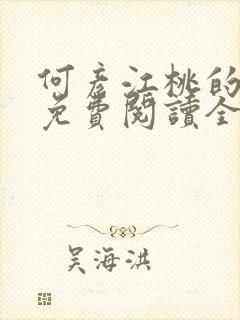 何彥江桃的
免費閱讀全
吴海洪